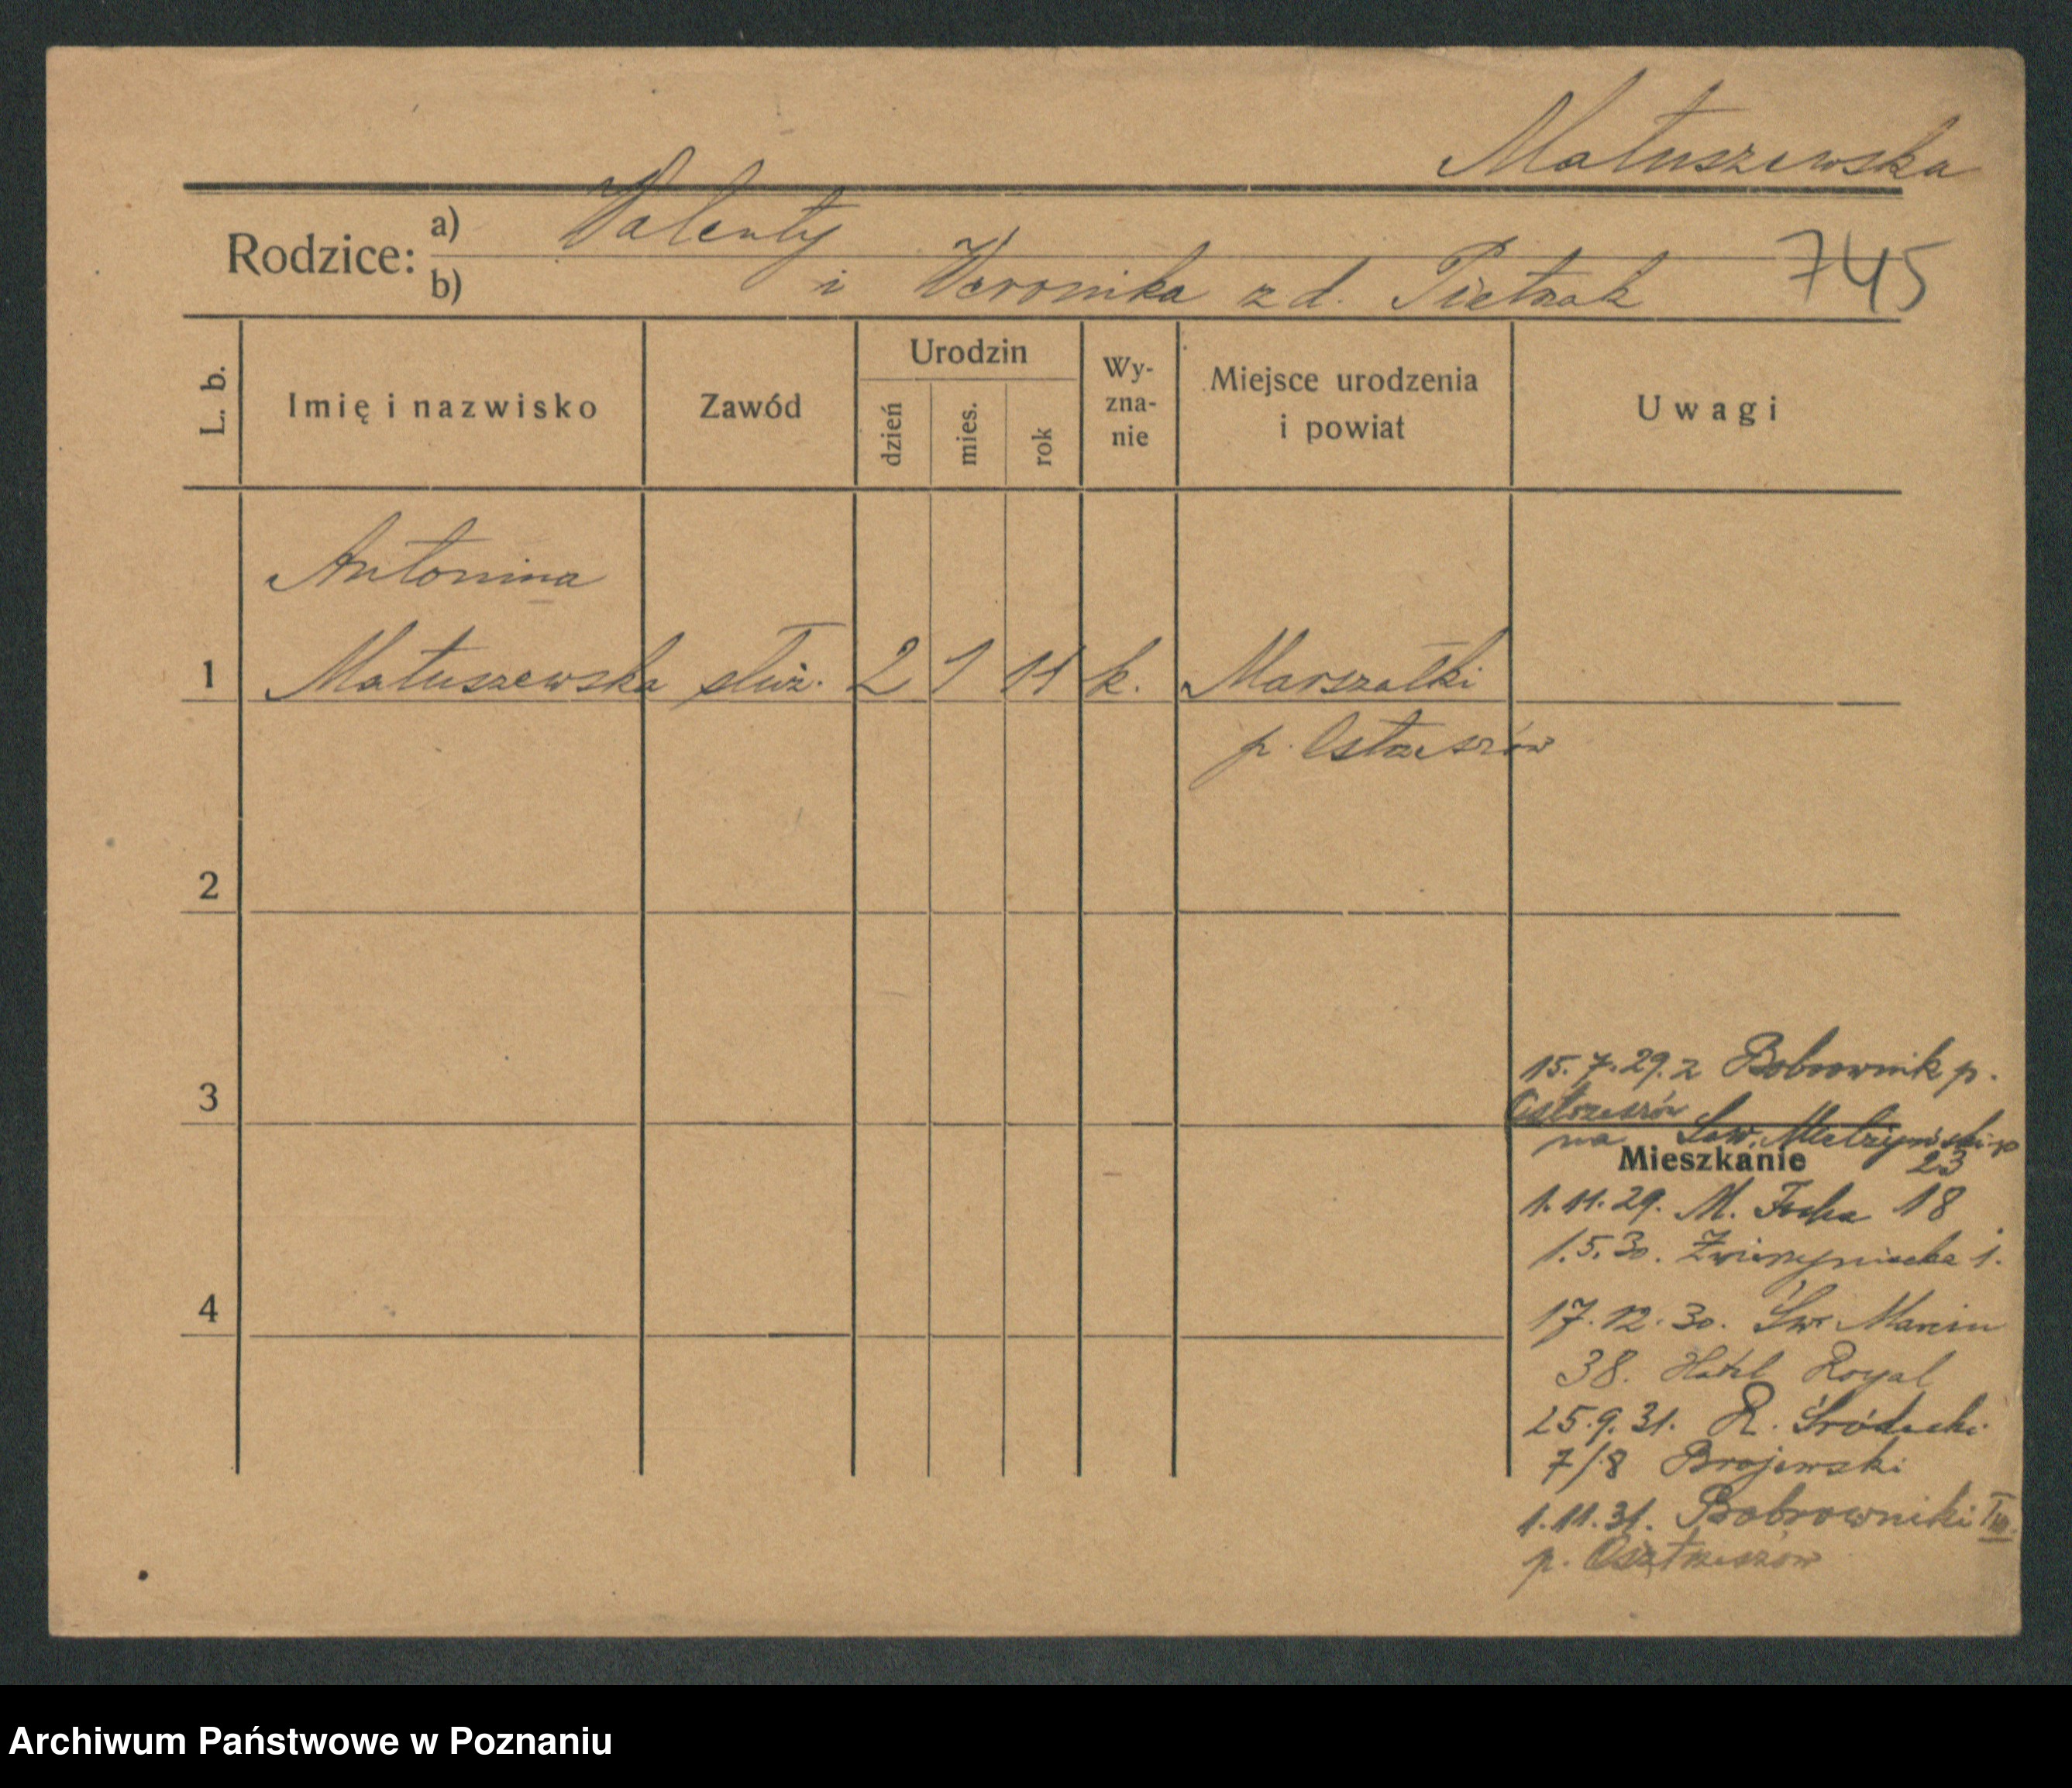 Matuszewska
Rodzice: a) Walenty
b) i Weronika z d. Pietrzak
745
L. b.
Imię i nazwisko
Zawód
Urodzin
dzień
mies.
rok
Wy-
zna-
nie
Miejsce urodzenia
i powiat
Uwagi
Antonina
1 Matuszewska służ. 2 1 11 k. Marszałki
p. Ostrzeszów
2
3
4
15.7.29. z Bobrownik p.
Ostrzeszów
na
23
Mieszkanie
1.11.29. M. Focha 18
1.5.30. Zwierzyniecka 1.
17.12.30. Św. Marcin
38. Hotel Royal
25.9.31. R. Śródecki
7/8 Brojewski
1.11.31. Bobrowniki
p. Ostrzeszów
Archiwum Państwowe w Poznaniu